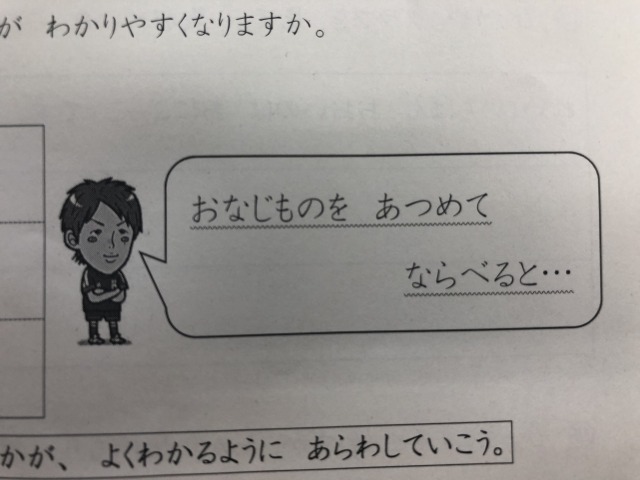 が わかりやすくなりますか。
おなじものを あつめて
ならべると…
かが、 よくわかるように あらわしていこう。